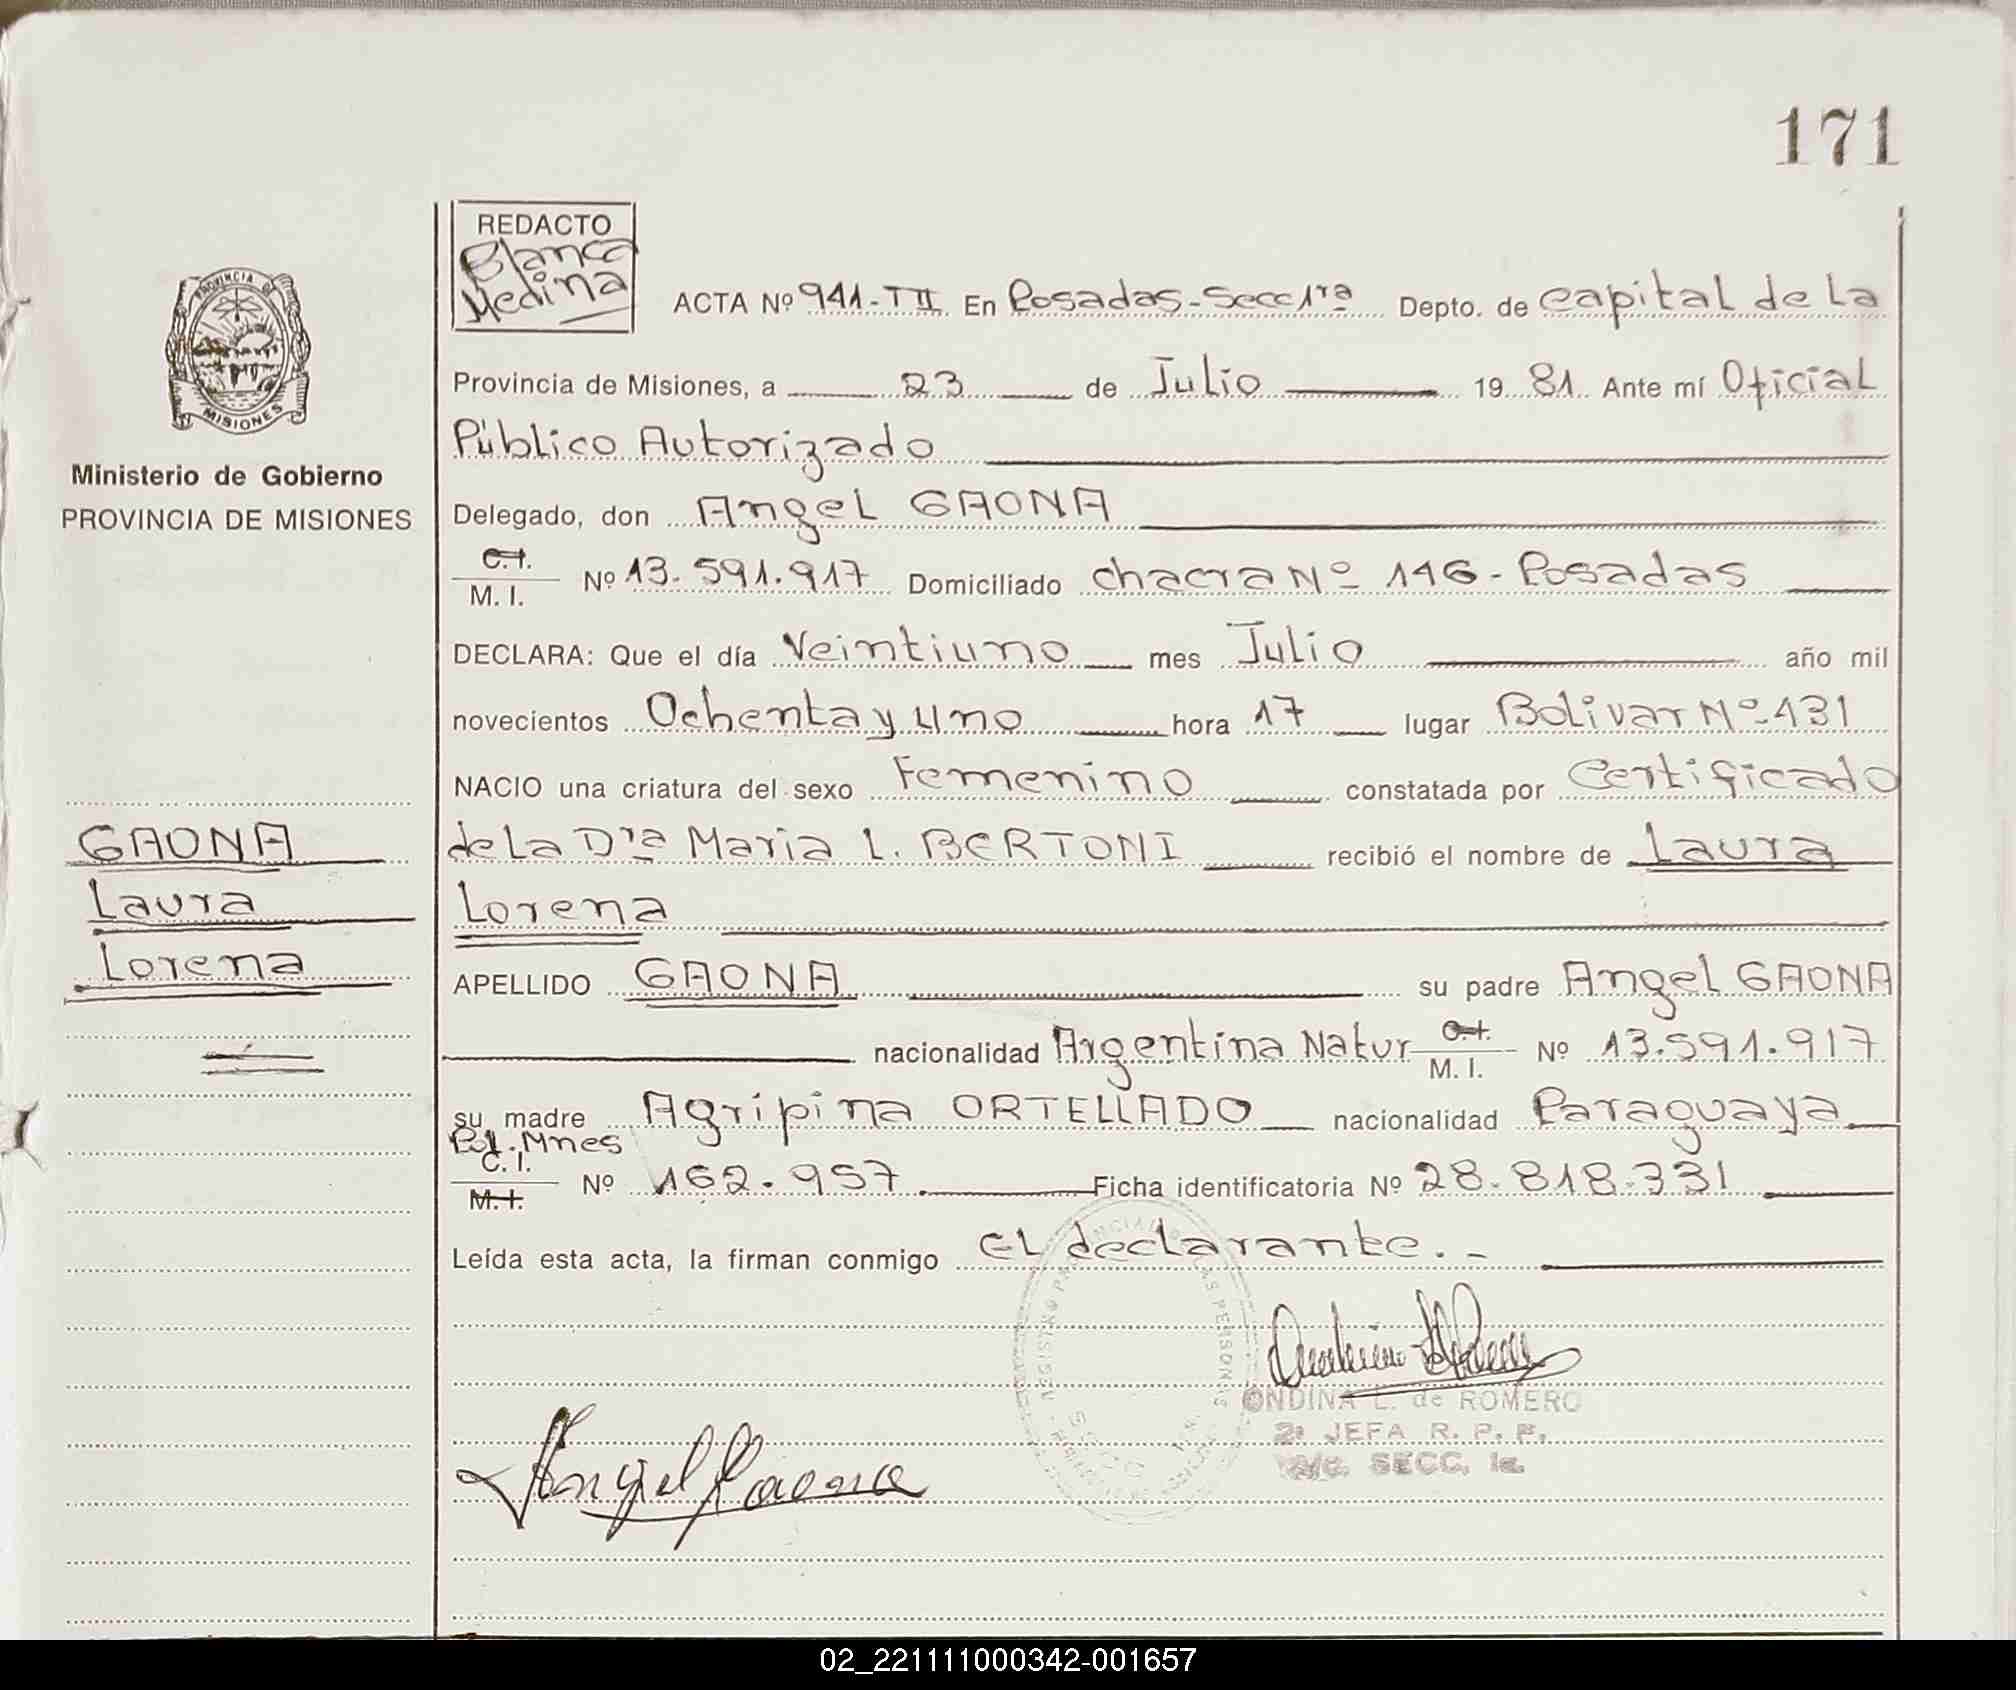 171
PROVINCIA DE
MISIONES
Ministerio de Gobierno
PROVINCIA DE MISIONES
GAONA
Laura
Lorena
REDACTO
Blanca
Medina
ACTA Nº 941-TII En Posadas-Secc 1ra Depto. de Capital de La
Provincia de Misiones, a 23 de Julio 19 81 Ante mí Oficial
Público Autorizado
Delegado, don Angel GAONA
C.I. M. I. Nº 13.591.917 Domiciliado chacra Nº 146 - Posadas
DECLARA: Que el día Veintiuno mes Julio año mil
novecientos Ochenta y uno hora 17 lugar Bolivar Nº 431
NACIO una criatura del sexo Femenino constatada por Certificado
de La Dra Maria L. BERTONI recibió el nombre de Laura
Lorena
APELLIDO GAONA su padre Angel GAONA
nacionalidad Argentina Natur C.I. M. I. Nº 13.591.917
su madre Agripina ORTELLADO nacionalidad Paraguaya
Pol. Mnes
C. I. M. I. Nº 162.957. Ficha identificatoria Nº 28.818.331
Leída esta acta, la firman conmigo EL declarante. -
Angel Gaona
ONDINA L. de ROMERO
2ª JEFA R. P. P.
SECC. 1a.
02_221111000342-001657